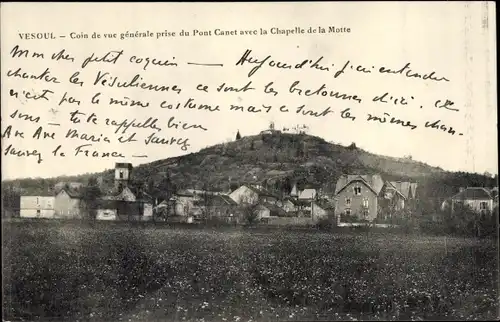 VESOUL - Coin de vue générale prise du Pont Canet avec la Chapelle de la Motte
Mon cher petit coquin — Aujourd'hui j'ai entendu
chanter les Vésuliennes ce sont les bretonnes d'ici. Ce
n'est pas le même costume mais ce sont les mêmes chan-
sons — te rappelles bien
Ave Ave Maria et Sauvez
Sauvez la France —